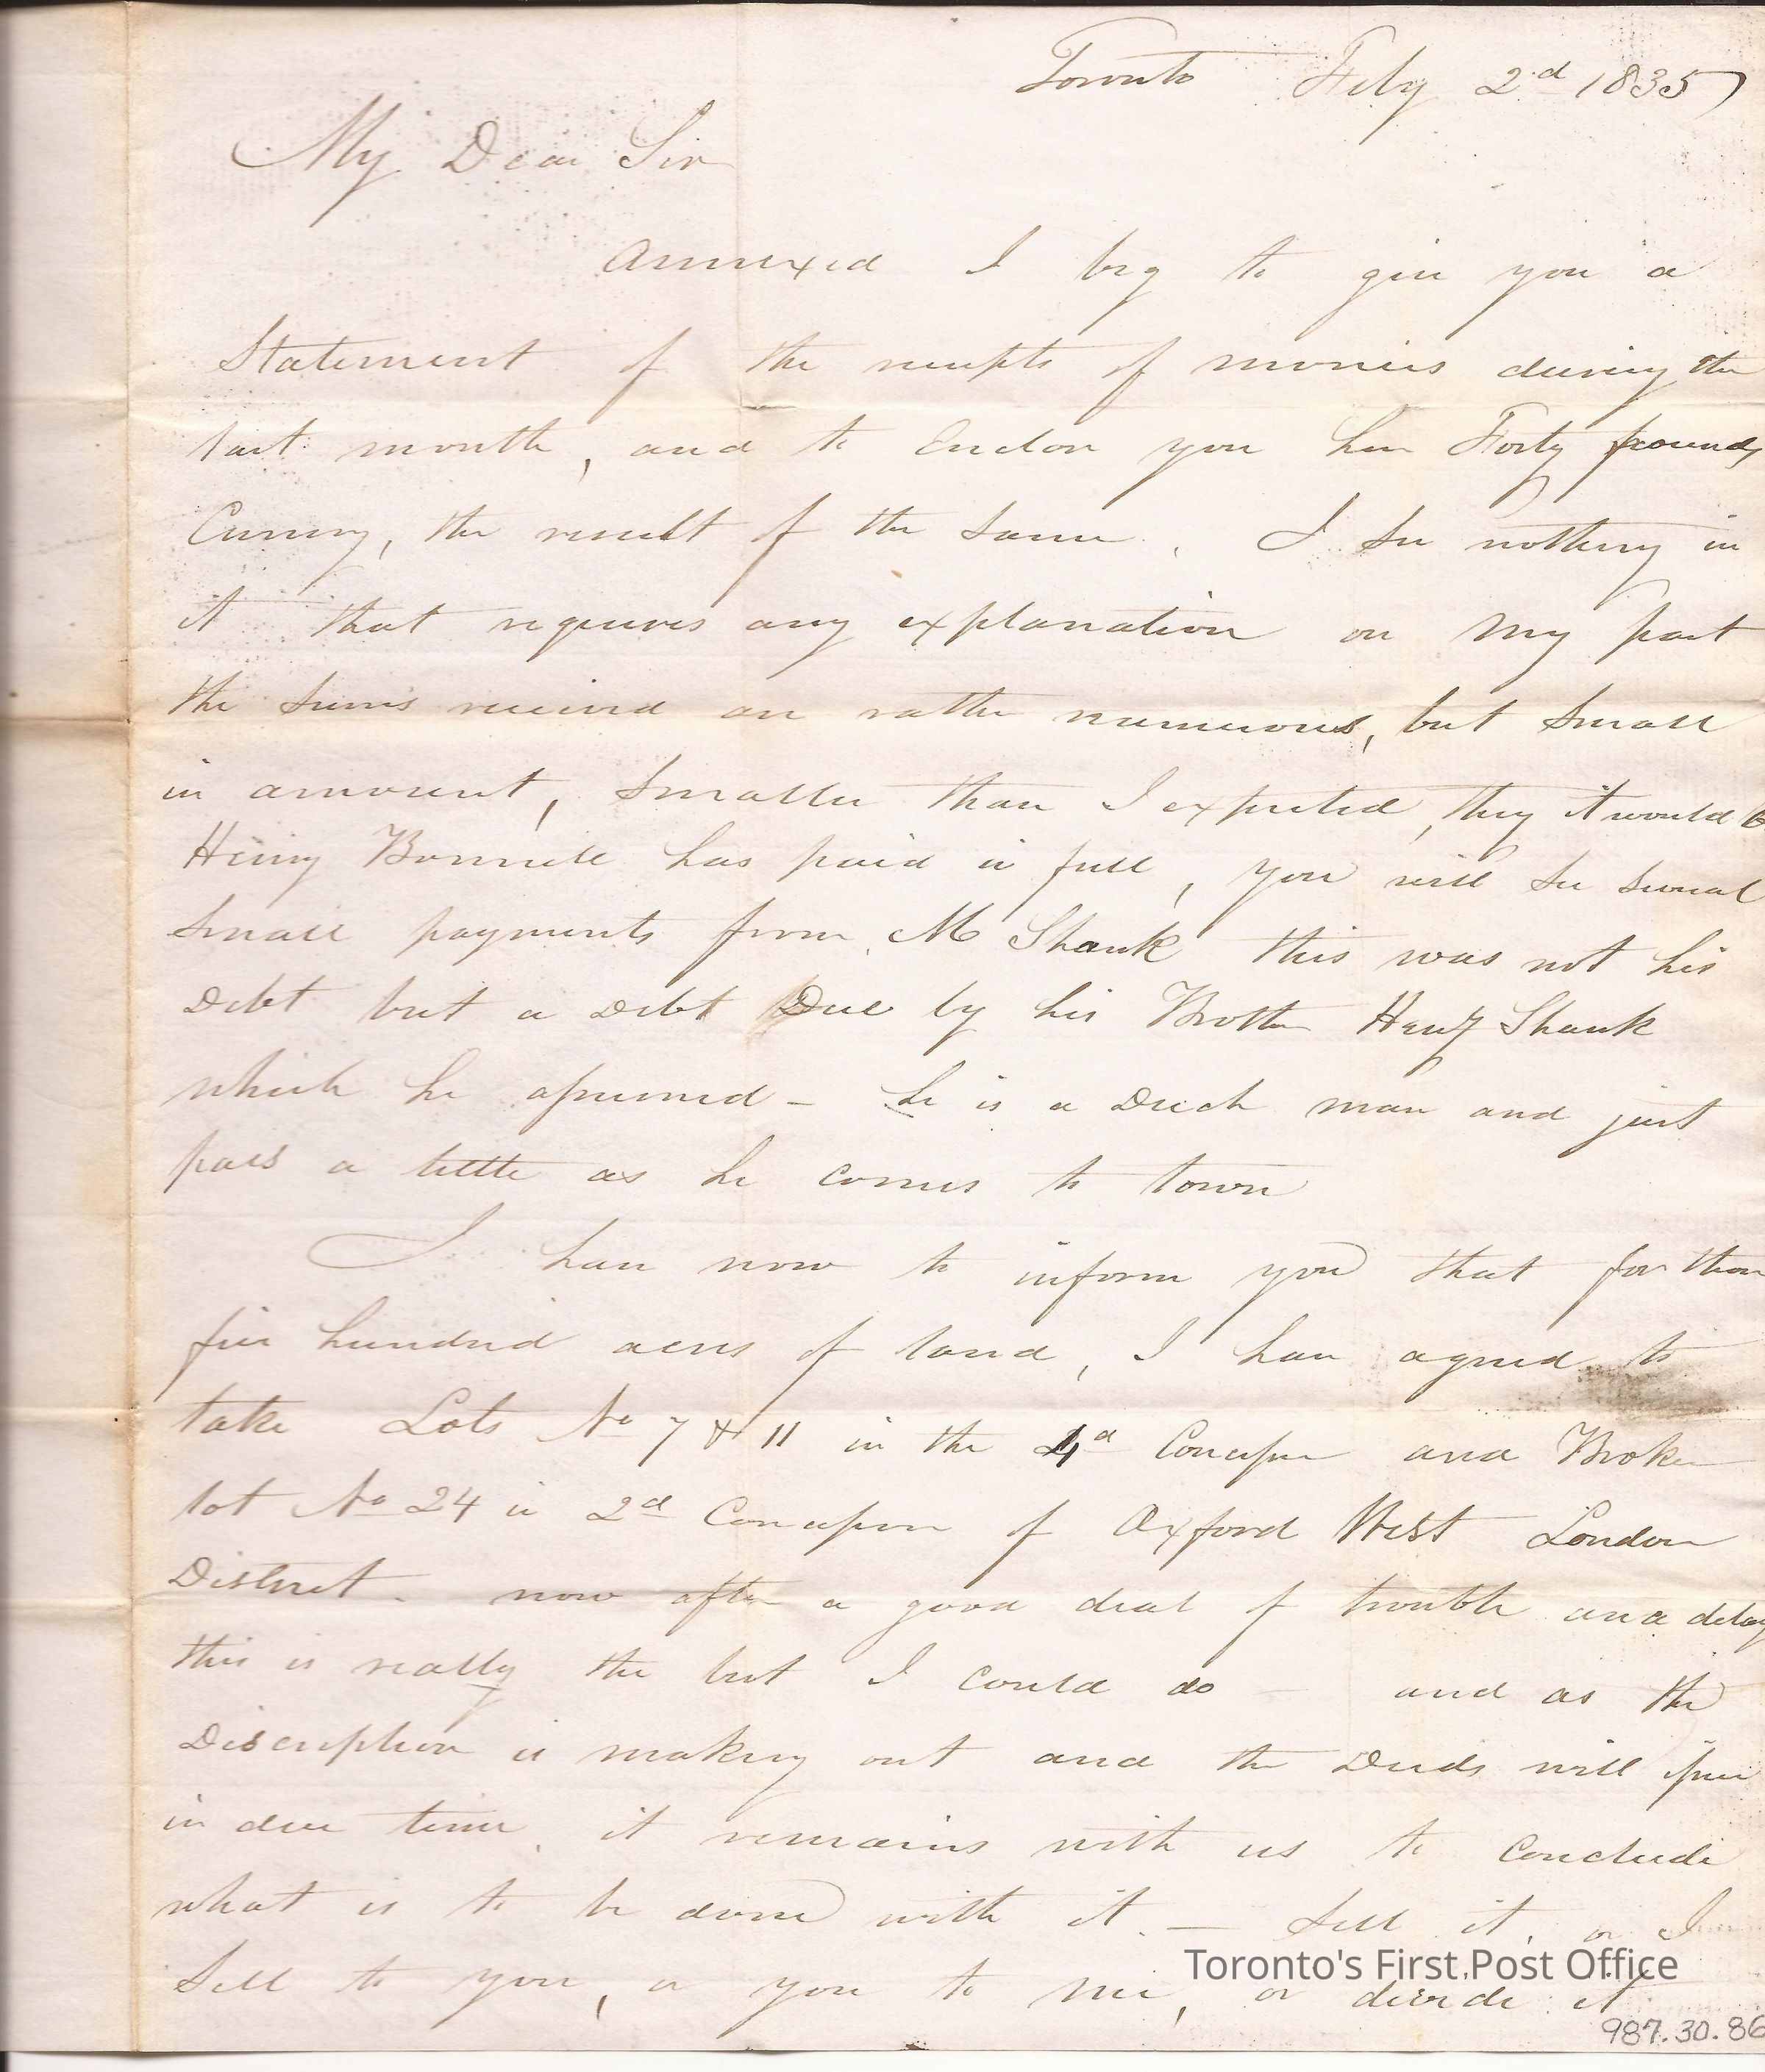 Toronto Feby 2d 1835
My Dear Sir
Annexed I beg to give you a
Statement of the receipts of monies during the
last month, and to Enclose you here Forty pounds
Currency, the result of the same. I see nothing in
it that requires any explanation on my part
the sums received are rather numerous, but small
in amount, smaller than I expected they it would be
Henry Bonnell has paid in full, you will see several
small payments from M Shank this was not his
Debt but a Debt Due by his Brother Henry Shank
which he assumed - he is a Duch man and just
pais a little as he comes to town
I have now to inform you that for those
five hundred acres of land, I have agreed to
take Lots No 7 & 11 in the 4d Concession and Broken
lot No 24 in 2d Concession of Oxford West London
District. now after a good deal of trouble and delay
this is really the best I could do - and as the
Discription is making out and the Deeds will issue
in due time, it remains with us to conclude
what is to be done with it. - Sell it, or I
Sell to you, or you to me, or divide it
Toronto's First Post Office
987.30.86